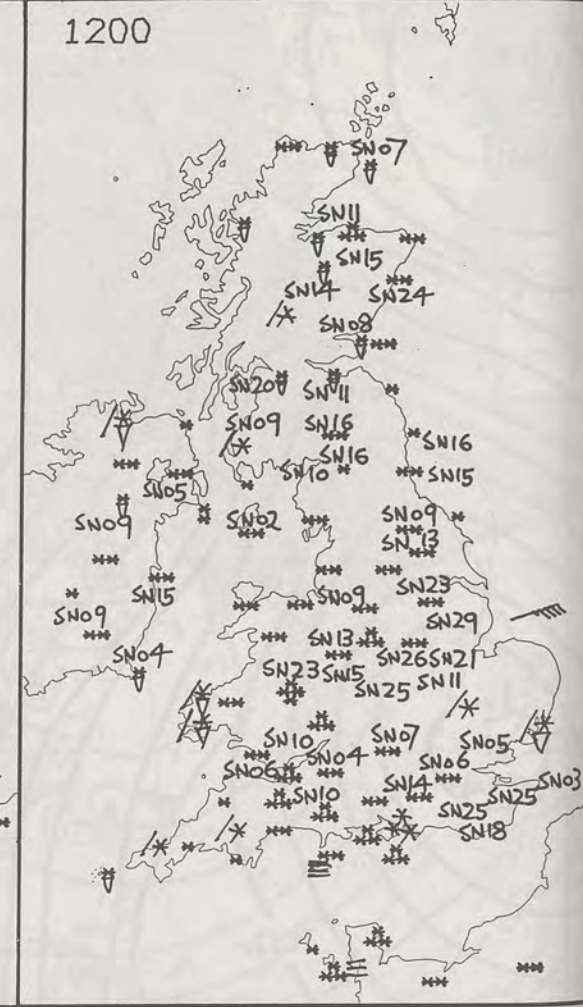 1200
SN07
SN11
SN15
SN14 SN24
SN08
SN20 SN11
SN09 SN16
SN16
SN16
SN10 SN15
SN05
SN09 SN02 SN09
SN13
SN15 SN09 SN23
SN09 SN29
SN04 SN13 SN26 SN21
SN23 SN15 SN25 SN11
SN10 SN07 SN05
SN06 SN04 SN06 SN03
SN10 SN14 SN25 SN25
SN18